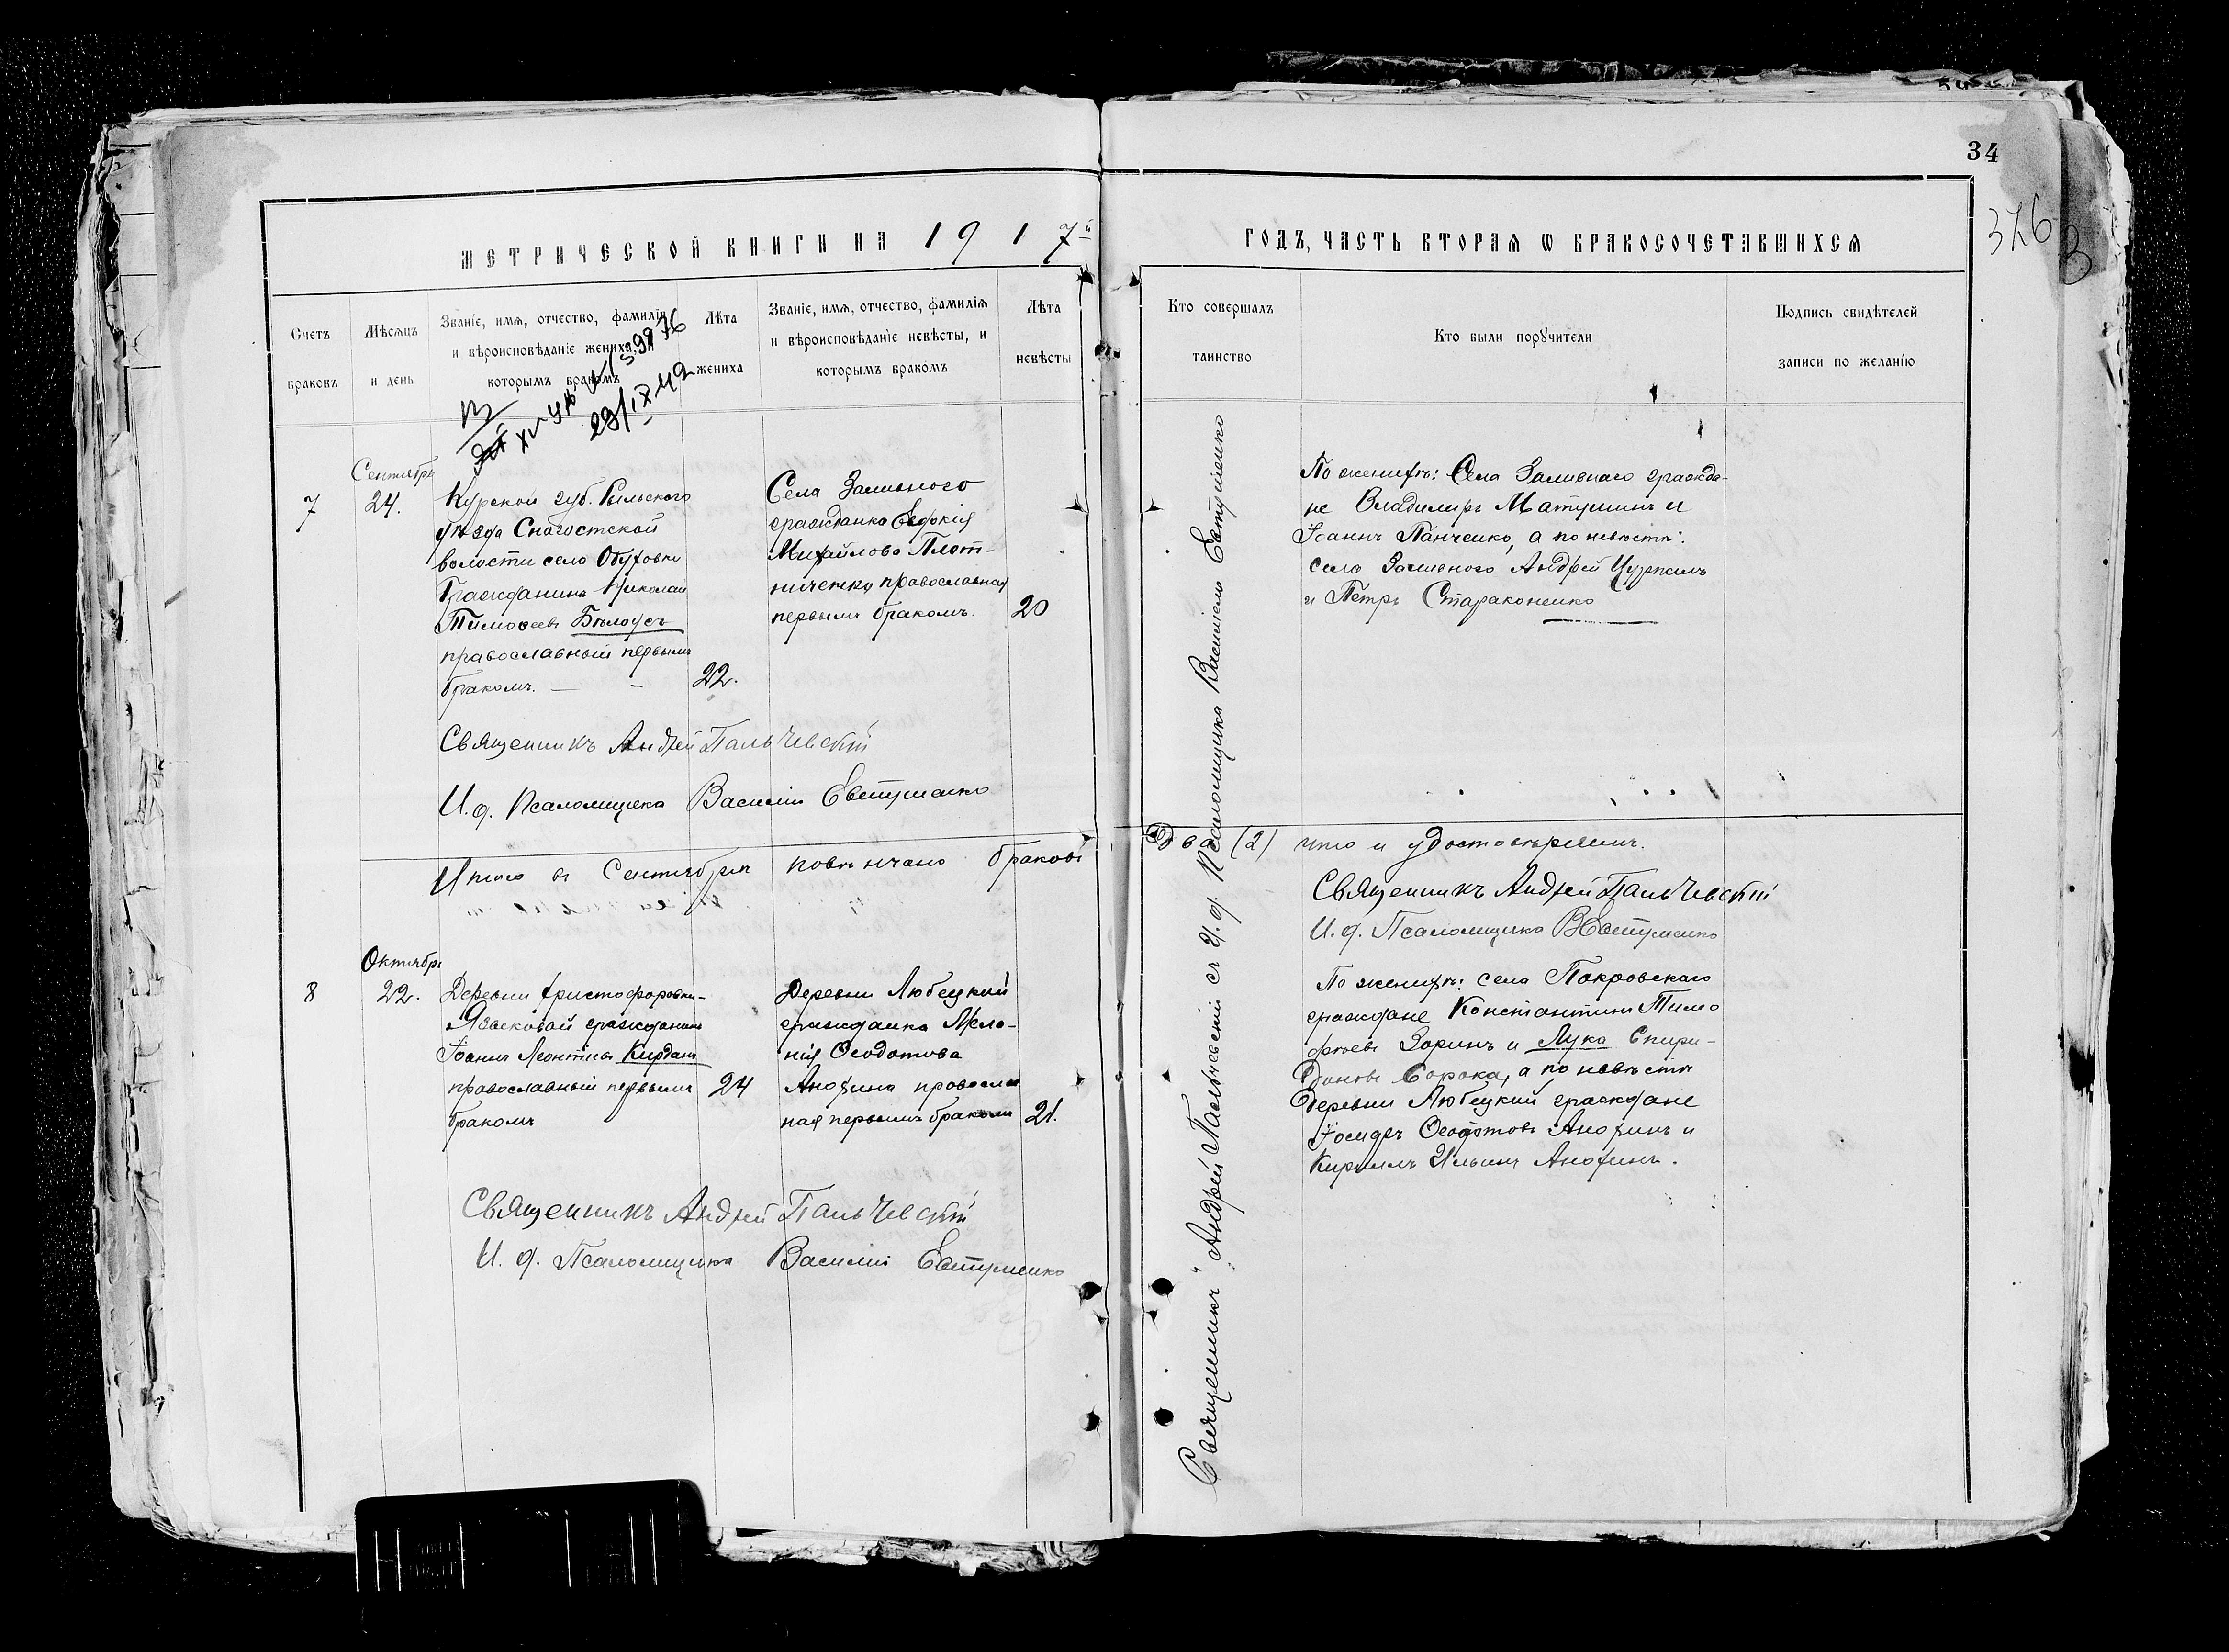 34
376
МЕТРИЧЕСКОЙ КНИГИ НА 1917й
ГОДЪ, ЧАСТЬ ВТОРАЯ Ѡ БРАКОСОЧЕТАВШИХСЯ
Счетъ браковъ
Мѣсяцъ и день
Званіе, имя, отчество, фамилія и вѣроисповѣданіе жениха, и которымъ бракомъ
Лѣта жениха
Званіе, имя, отчество, фамилія и вѣроисповѣданіе невѣсты, и которымъ бракомъ
Лѣта невѣсты
Кто совершалъ таинство
Кто были поручители
Подпись свидѣтелей записи по желанію
29/IX 42
Сентябрь
7
24.
Курской губ. Рыльского
уѣзда Снагостской
волости село Обуховки
Гражданинъ Николай
Тимофеевъ Бѣлоусъ
православный первымъ
бракомъ. — —
22.
Села Заливного
гражданка Евдокія
Михайлова Плот-
ниченко православная
первымъ бракомъ.
20
По женихѣ: Села Заливнаго гражда-
не Владимиръ Матушинъ и
Іоаннъ Панченко, а по невѣстѣ:
села Заливного Андрей Цуркинъ
и Петръ Стараконенко
Священникъ Андрей Пальчевскій
И. д. Псаломщика Василій Евтушенко
Итого въ Сентябрѣ повѣнчано браковъ
Два (2) что и удостовѣряемъ.
Священникъ Андрей Пальчевскій
И. д. Псаломщика ВЕвтушенко
Октябрь
8
22.
Деревни Христофоровки-
Языковой гражданинъ
Іоаннъ Леонтіевъ Кирданъ
православный первымъ
бракомъ
24
Деревни Любецкий
гражданка Мела-
нія Ѳеодотова
Анохина православ
ная первымъ бракомъ
21.
По женихѣ: села Покровскаго
граждане Константинъ Тимо
феевъ Зоринъ и Лука Спири-
доновъ Сорока, а по невѣстѣ
Деревни Любецкий граждане
Іосифъ Ѳеодотовъ Анохинъ и
Кириллъ Ильинъ Анохинъ.
Священникъ Андрей Пальчевскій
И. д. Псаломщика Василій Евтушенко
Священникъ Андрей Пальчевскій съ И. д. Псаломщика Василіемъ Евтушенко